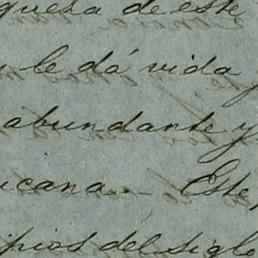 queza de este
le dá vida
abundante y
icana. — Este
ipios del siglo